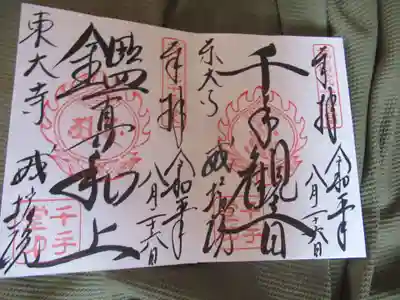 奉拝
令和二年
八月二十六日
千手観音
東大寺
戒壇院
奉拝
令和二年
八月二十六日
鑑真和上
東大寺
戒壇院
千手
堂印